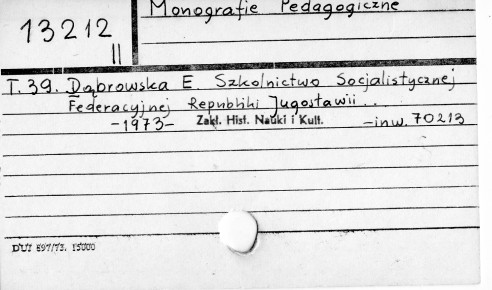 Monografie Pedagogiczne
13212
II
T. 39. Dąbrowska E. Szkolnictwo Socjalistycznej
Federacyjnej Republiki Jugosławii...
-1973- Zakł. Hist. Nauki i Kult. -inw. 70213
DUJ 897/73. 15000